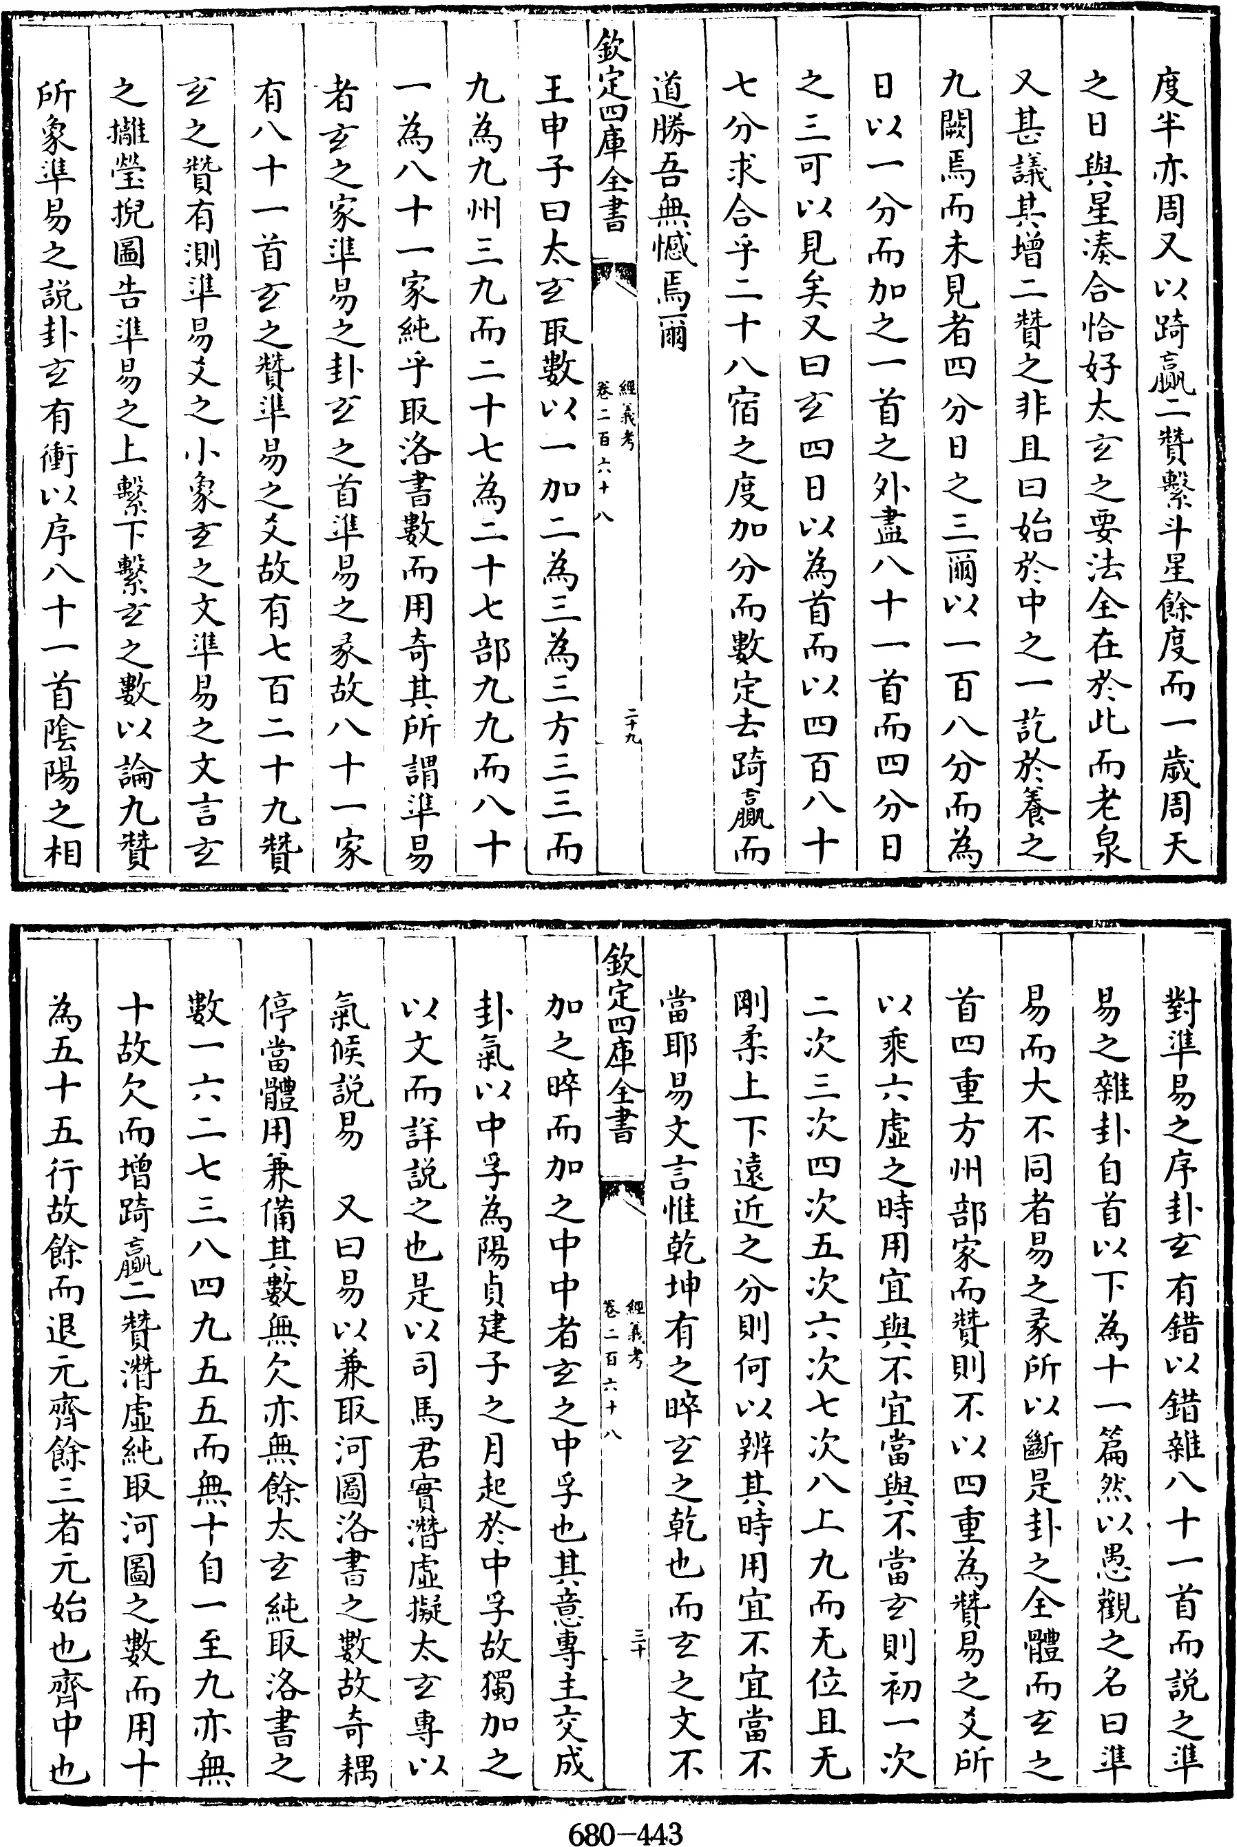 度半亦周又以踦贏二贊繫斗星餘度而一歲周天
之日與星湊合恰好太玄之要法全在於此而老泉
又甚議其增二贊之非且曰始於中之一訖於養之
九闕焉而未見者四分日之三爾以一百八分而為
日以一分而加之一首之外盡八十一首而四分日
之三可以見矣又曰玄四日以為首而以四百八十
七分求合乎二十八宿之度加分而數定去踦贏而
道勝吾無憾焉爾
欽定四庫全書
經義考
卷二百六十八
二十九
王申子曰太玄取數以一加二為三為三方三三而
九為九州三九而二十七為二十七部九九而八十
一為八十一家純乎取洛書數而用奇其所謂準易
者玄之家準易之卦玄之首準易之彖故八十一家
有八十一首玄之贊準易之爻故有七百二十九贊
玄之贊有測準易爻之小象玄之文準易之文言玄
之攡瑩掜圖告準易之上繫下繫玄之數以論九贊
所象準易之説卦玄有衝以序八十一首陰陽之相
對準易之序卦玄有錯以錯雜八十一首而説之準
易之雜卦自首以下為十一篇然以愚觀之名曰準
易而大不同者易之彖所以斷是卦之全體而玄之
首四重方州部家而贊則不以四重為贊易之爻所
以乘六虛之時用宜與不宜當與不當玄則初一次
二次三次四次五次六次七次八上九而无位且无
剛柔上下遠近之分則何以辨其時用宜不宜當不
當耶易文言惟乾坤有之晬玄之乾也而玄之文不
欽定四庫全書
經義考
卷二百六十八
三十
加之晬而加之中中者玄之中孚也其意專主交成
卦氣以中孚為陽貞建子之月起於中孚故獨加之
以文而詳説之也是以司馬君實潛虛擬太玄專以
氣候説易　又曰易以兼取河圖洛書之數故奇耦
停當體用兼備其數無欠亦無餘太玄純取洛書之
數一六二七三八四九五五而無十自一至九亦無
十故欠而增踦贏二贊潛虛純取河圖之數而用十
為五十五行故餘而退元齊餘三者元始也齊中也
680-443